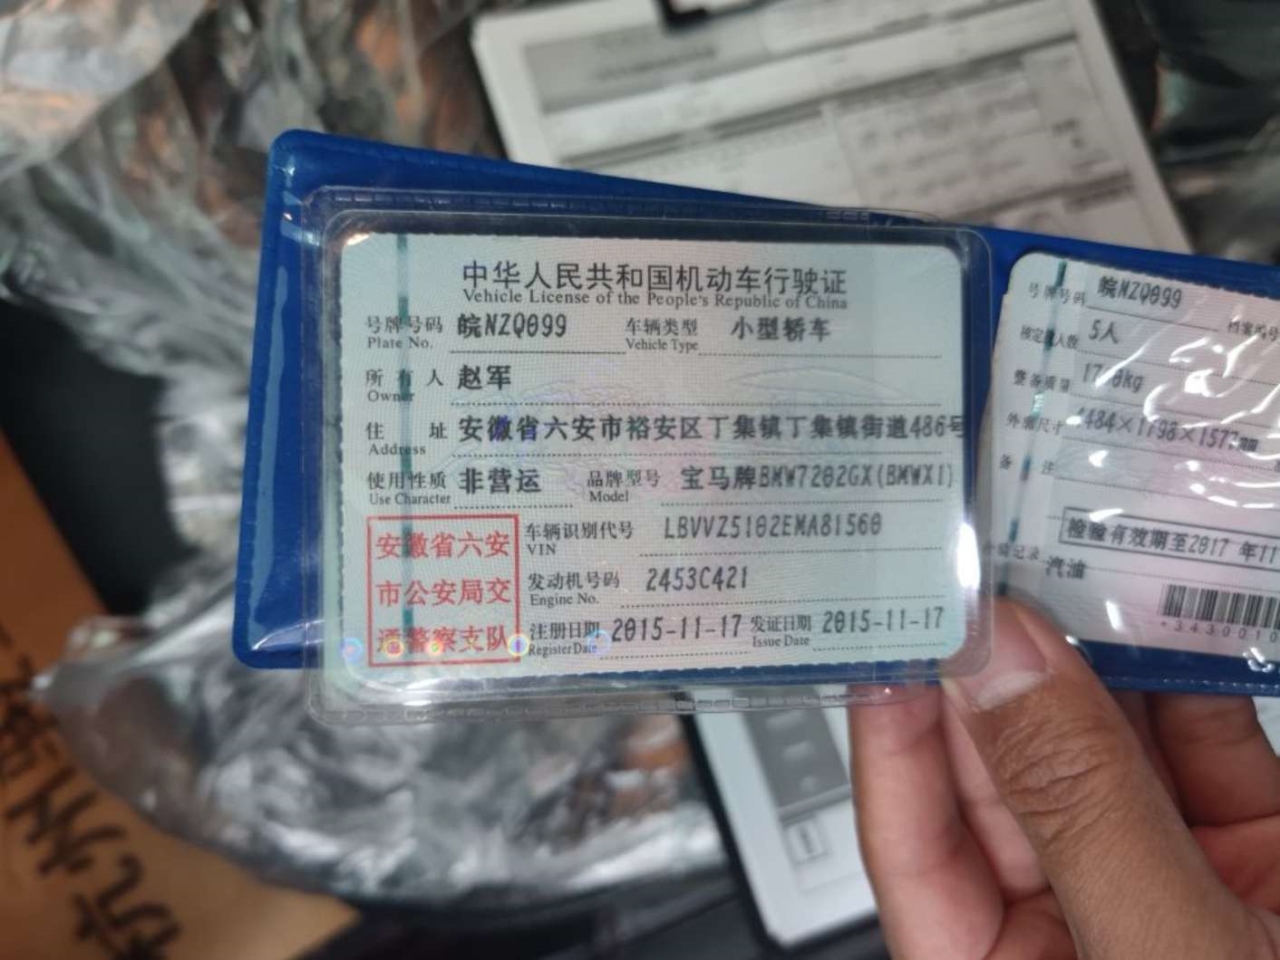 中华人民共和国机动车行驶证
Vehicle License of the People's Republic of China
号牌号码 皖NZQ099 车辆类型 小型轿车
Plate No. Vehicle Type
所有人 赵军
Owner
住址 安徽省六安市裕安区丁集镇丁集镇街道486号
Address
使用性质 非营运 品牌型号 宝马牌BMW7202GX(BMWX1)
Use Character Model
安徽省六安
市公安局交
通警察支队
车辆识别代号 LBVVZ5102EMA81560
VIN
发动机号码 2453C421
Engine No.
注册日期 2015-11-17 发证日期 2015-11-17
Register Date Issue Date
号牌号码 皖NZQ099 档案编号
核定载人数 5人
整备质量
外廓尺寸 4484×1798×1577mm
备注
检验有效期至2017年11
检验记录 汽油
*3430010
杭州